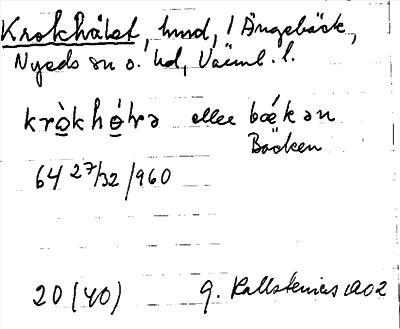 Krokhålet, hmd, i Ängebäck,
Nyeds sn o. hd, Värml. l.
krò̲khó̲lrə eller bǽkən
Bäcken
64 27/32 /960
20 (40) G. Kallstenius 1902